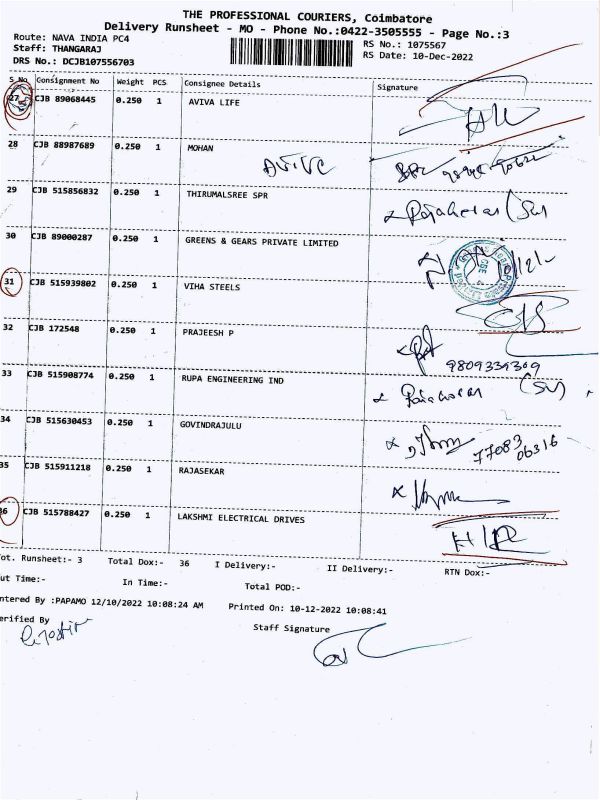 THE PROFESSIONAL COURIERS, Coimbatore
Delivery Runsheet - MO - Phone No.:0422-3505555 - Page No.:3
Route: NAVA INDIA PC4 RS No.: 1075567
Staff: THANGARAJ RS Date: 10-Dec-2022
DRS No.: DCJB107556703
S No Consignment No Weight PCS Consignee Details Signature
27 CJB 89068445 0.250 1 AVIVA LIFE
28 CJB 88987689 0.250 1 MOHAN
29 CJB 515856832 0.250 1 THIRUMALSREE SPR
30 CJB 89000287 0.250 1 GREENS & GEARS PRIVATE LIMITED
31 CJB 515939802 0.250 1 VIHA STEELS
32 CJB 172548 0.250 1 PRAJEESH P
9809339309
33 CJB 515908774 0.250 1 RUPA ENGINEERING IND
34 CJB 515630453 0.250 1 GOVINDRAJULU
77083
06316
35 CJB 515911218 0.250 1 RAJASEKAR
36 CJB 515788427 0.250 1 LAKSHMI ELECTRICAL DRIVES
ot. Runsheet:- 3 Total Dox:- 36 I Delivery:- II Delivery:- RTN Dox:-
ut Time:- In Time:- Total POD:-
ntered By :PAPAMO 12/10/2022 10:08:24 AM Printed On: 10-12-2022 10:08:41
erified By Staff Signature